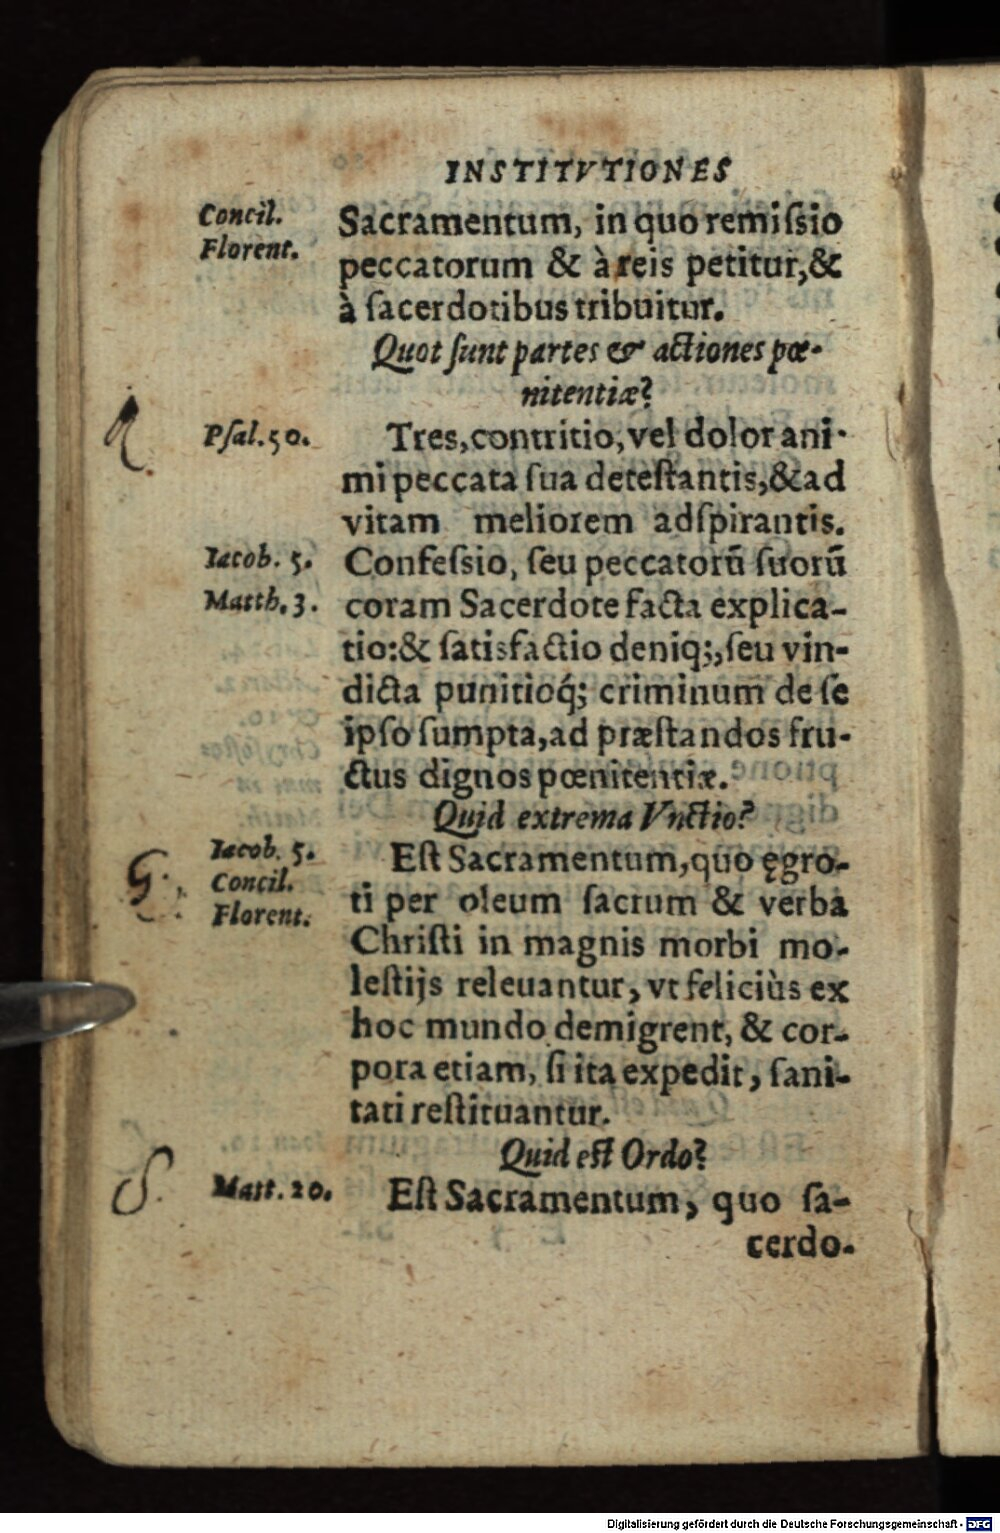 INSTITVTIONES
Concil.
Florent.
Sacramentum, in quo remiſsio
peccatorum & à reis petitur, &
à ſacerdotibus tribuitur.
Quot ſunt partes & actiones pœ-
nitentiæ?
Pſal. 50.
Tres, contritio, vel dolor ani-
mi peccata ſua deteſtantis, & ad
vitam meliorem adſpirantis.
Iacob. 5.
Matth. 3.
Confeſsio, ſeu peccatorũ ſuorũ
coram Sacerdote facta explica-
tio: & ſatisfactio deniq;, ſeu vin-
dicta punitioq́; criminum de ſe
ipſo ſumpta, ad præſtandos fru-
ctus dignos pœnitentiæ.
Quid extrema Vnctio?
5.
Iacob. 5.
Concil.
Florent.
Eſt Sacramentum, quo ęgro-
ti per oleum ſacrum & verba
Chriſti in magnis morbi mo-
leſtijs releuantur, vt feliciùs ex
hoc mundo demigrent, & cor-
pora etiam, ſi ita expedit, ſani-
tati reſtituantur.
Quid eſt Ordo?
Matt. 20.
Eſt Sacramentum, quo ſa-
cerdo-
Digitalisierung gefördert durch die Deutsche Forschungsgemeinschaft - DFG